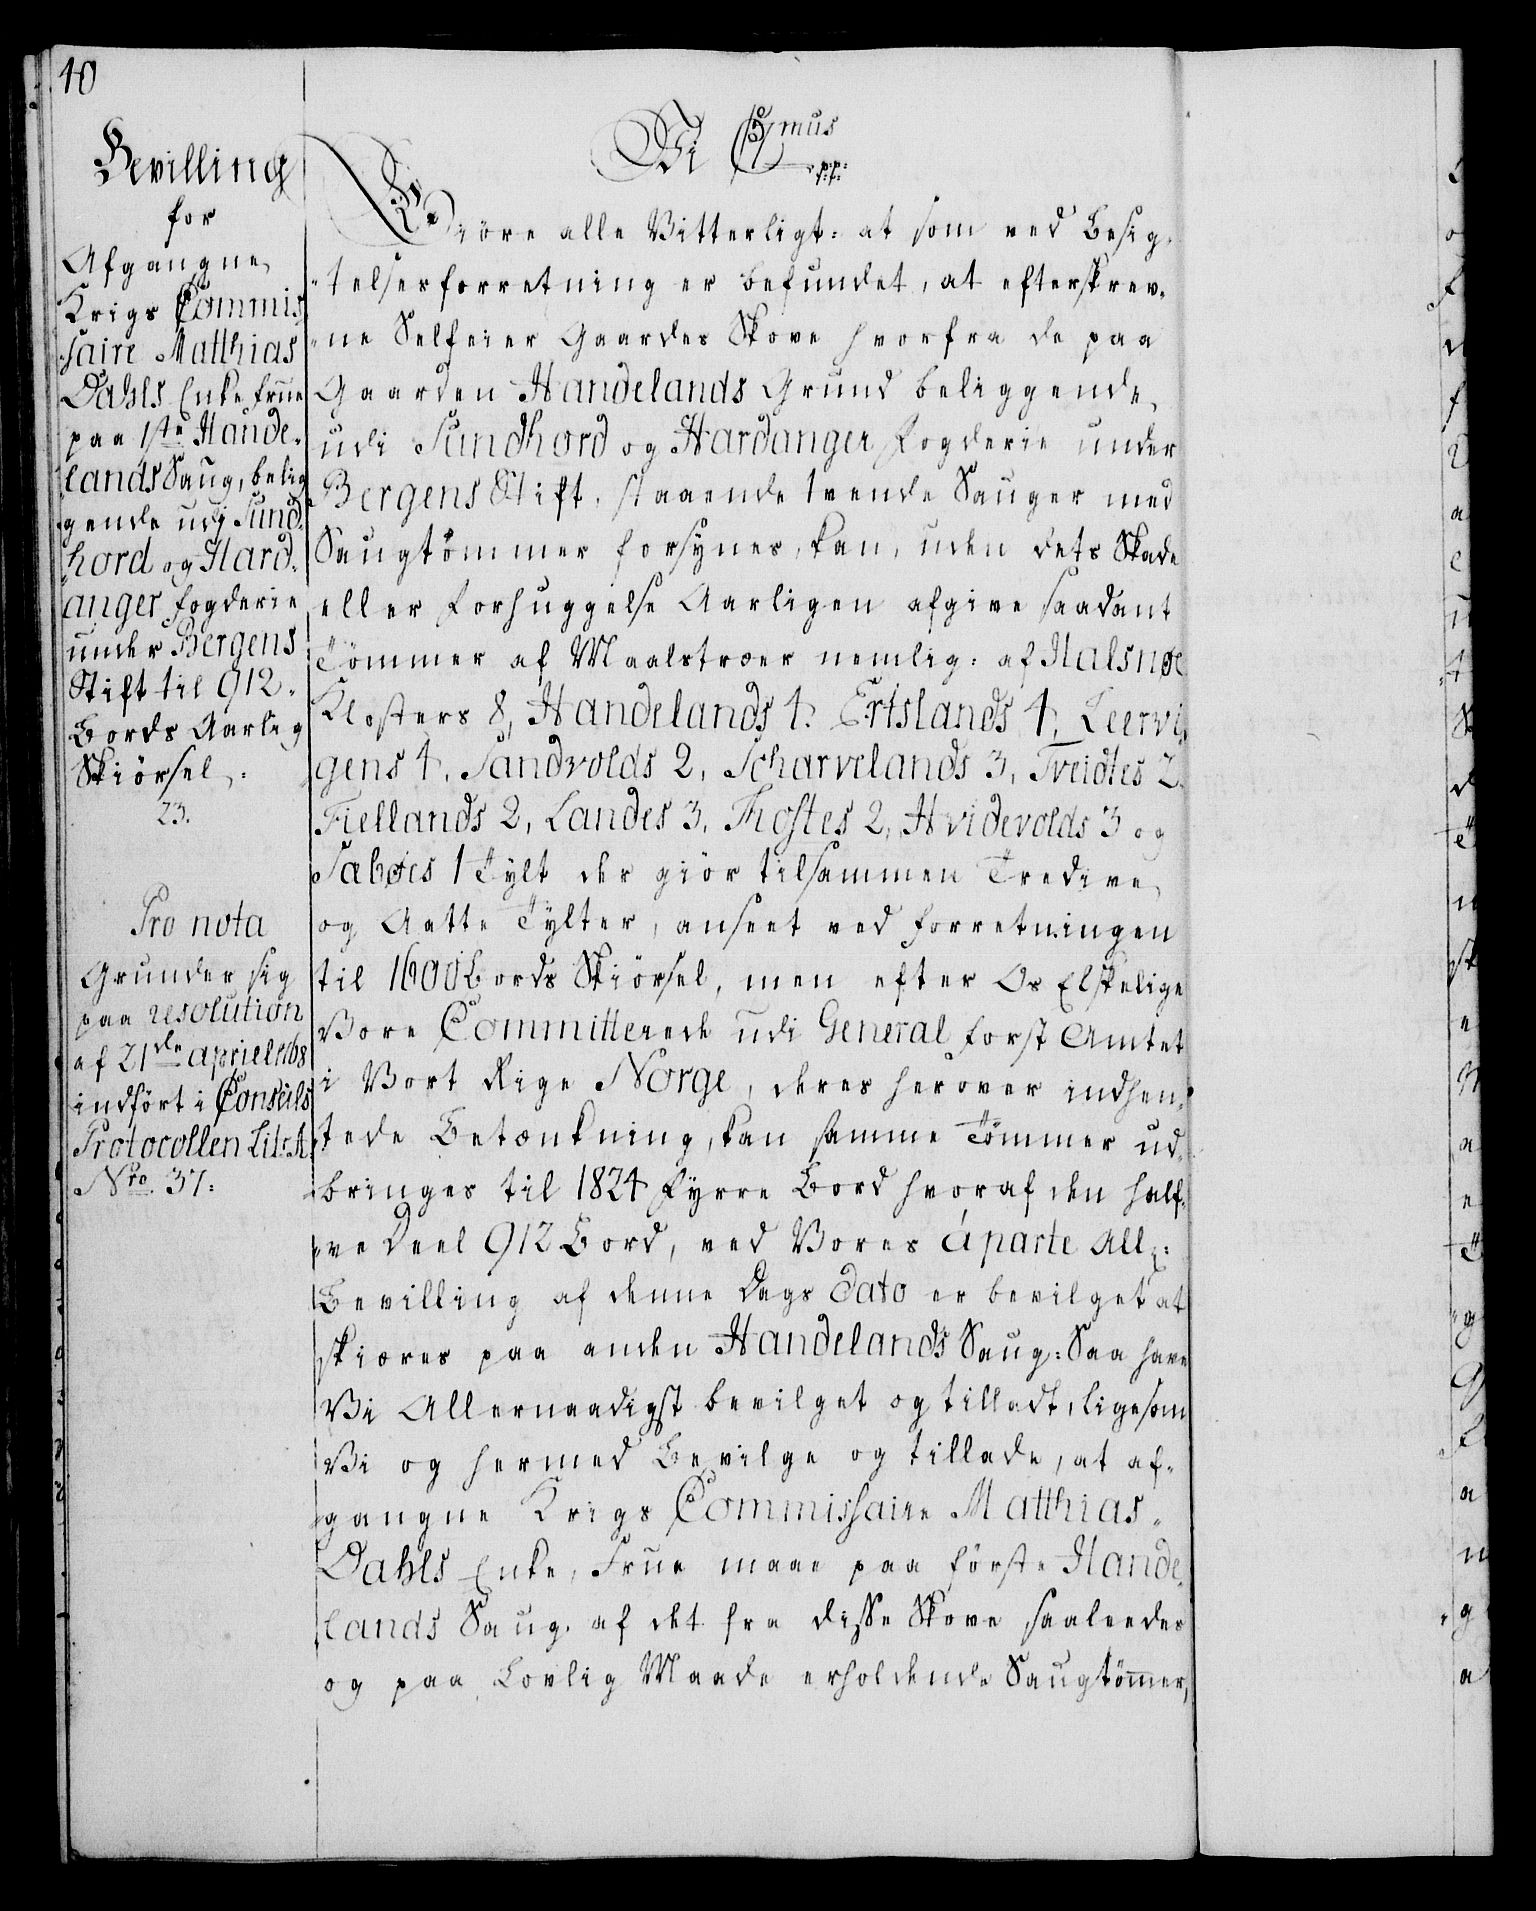 40
Bevilling
for
Afgangne
Krigs Commis
saire Matthias
Dahls Enke frue
paa 1ste Hande-
lands Saug, belig
gende udj Sund-
hord og Hard-
anger fogderie
under Bergens
Stift til 912.
Bords Aarlig
Skiörsel.
23.
Pro nota
Grunder sig
paa resolution
af 21de april 1768
indfört i Conseils
Protocollen Lit: A.
Nro. 37:
Vi C 7mus
p:p:
Giöre alle Vitterligt: at som ved Besig-
telsesforretning er befundet, at efterskrev-
ne Selfeier Gaardes Skove hvorfra de paa
Gaarden Handelands Grund beliggende
udi Sundhord og Hardanger Fogderie under
Bergens Stift, staaende tvende Sauger med
Saugtömmer forsynes, kan, uden dets Skade
eller Forhuggelse Aarligen afgive saadant
Tömmer af Maalstrær nemlig: af Halsnøe
Klosters 8, Handelands 4. Ertslands 4, Leervi
gens 4, Sandvolds 2, Scharvelands 3, Tveidtes 2.
Fiellands 2, Landes 3, Thostes 2, Hvidevolds 3 og
Sabøes 1 Tylt der giör tilsammen Tredive
og Aatte Tylter, anseet ved forretningen
til 1600 Bords Skiörsel, men efter Os Elskelige
Vore Committerede udi General forst Amtet
i Vort Rige Norge, deres herover indhen-
tede Betænkning, kan samme Tömmer ud-
bringes til 1824 Fyrre Bord hvoraf den half-
ve Deel 912 Bord, ved Vores áparte All:
Bevilling af denne Dags Dato er bevilget at
skiæres paa anden Handelands Saug: Saa have
Vi Allernaadigst bevilget og tilladt, ligesom
Vi og hermed Bevilge og tillade, at af-
gangne Krigs Commissaire Matthias
Dahls Enke, Frue maae paa förste Hande-
lands Saug af det fra disse Skove saaleedes
og paa Lovlig Maade erholdende Saugtömer,